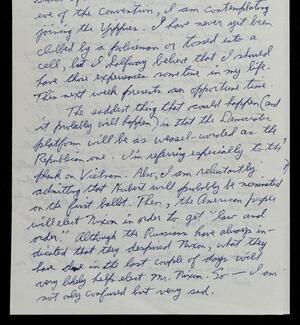 eve of the Convention, I am contemplating
joining the Yippies. I have never yet been
clubbed by a policeman or tossed into a
cell, but I halfway believe that I should
have these experiences sometime in my life.
This next week presents an opportune time
The saddest thing that could happen (and
it probably will happen) is that the Democratic
platform will be as weasel-worded as the
Republican one. I'm referring especially to the
plank on Vietnam. Also, I am reluctantly
admitting that Hubert will probably be nominated
on the first ballot. Then, the American people
will elect Nixon in order to get "law and
order." Although the Russians have always in-
dicated that they despised Nixon, what they
have done in the last couple of days will
very likely help elect Mr. Nixon. So — I am
not only confused but very sad.